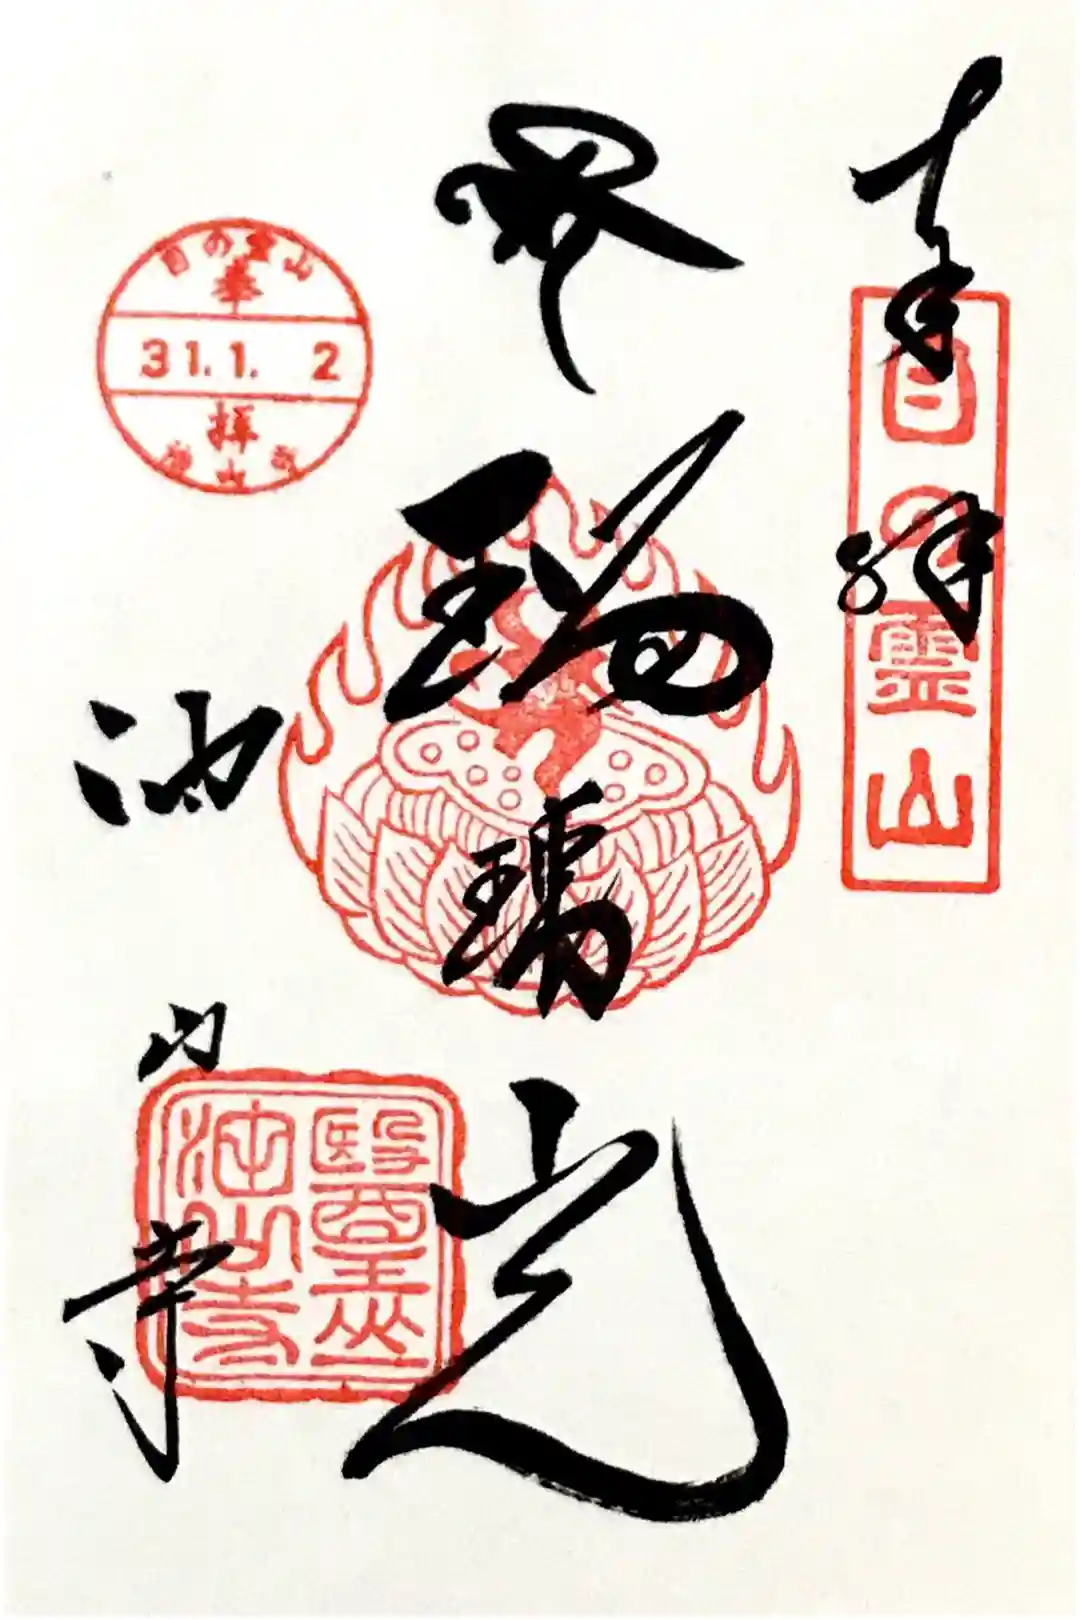 奉拝
目の霊山
瑠璃光
油山寺
醫王山
油山寺
目の霊山
奉
31.1. 2
拝
油山寺